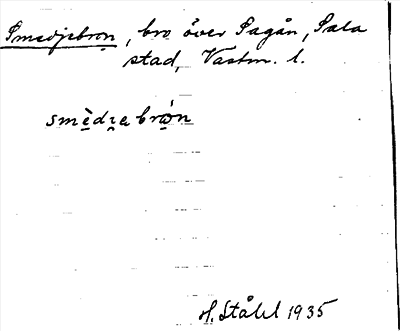 Smedjebron, bro över Sagån, Sala
stad, Västm. l.
smèdɿebrǿn
H. Ståhl 1935